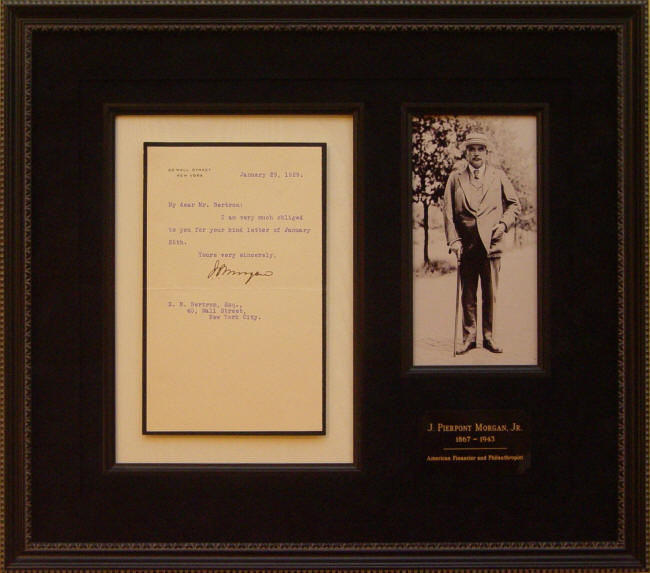 WALL STREET
NEW YORK
January 29, 1929.
My dear Mr. Bertron:
I am very much obliged
to you for your kind letter of January
25th.
Yours very sincerely,
JPMorgan
Bertron, Esq.,
40, Wall Street,
New York City.
J. PIERPONT MORGAN, JR.
1867 - 1943
American Financier and Philanthropist